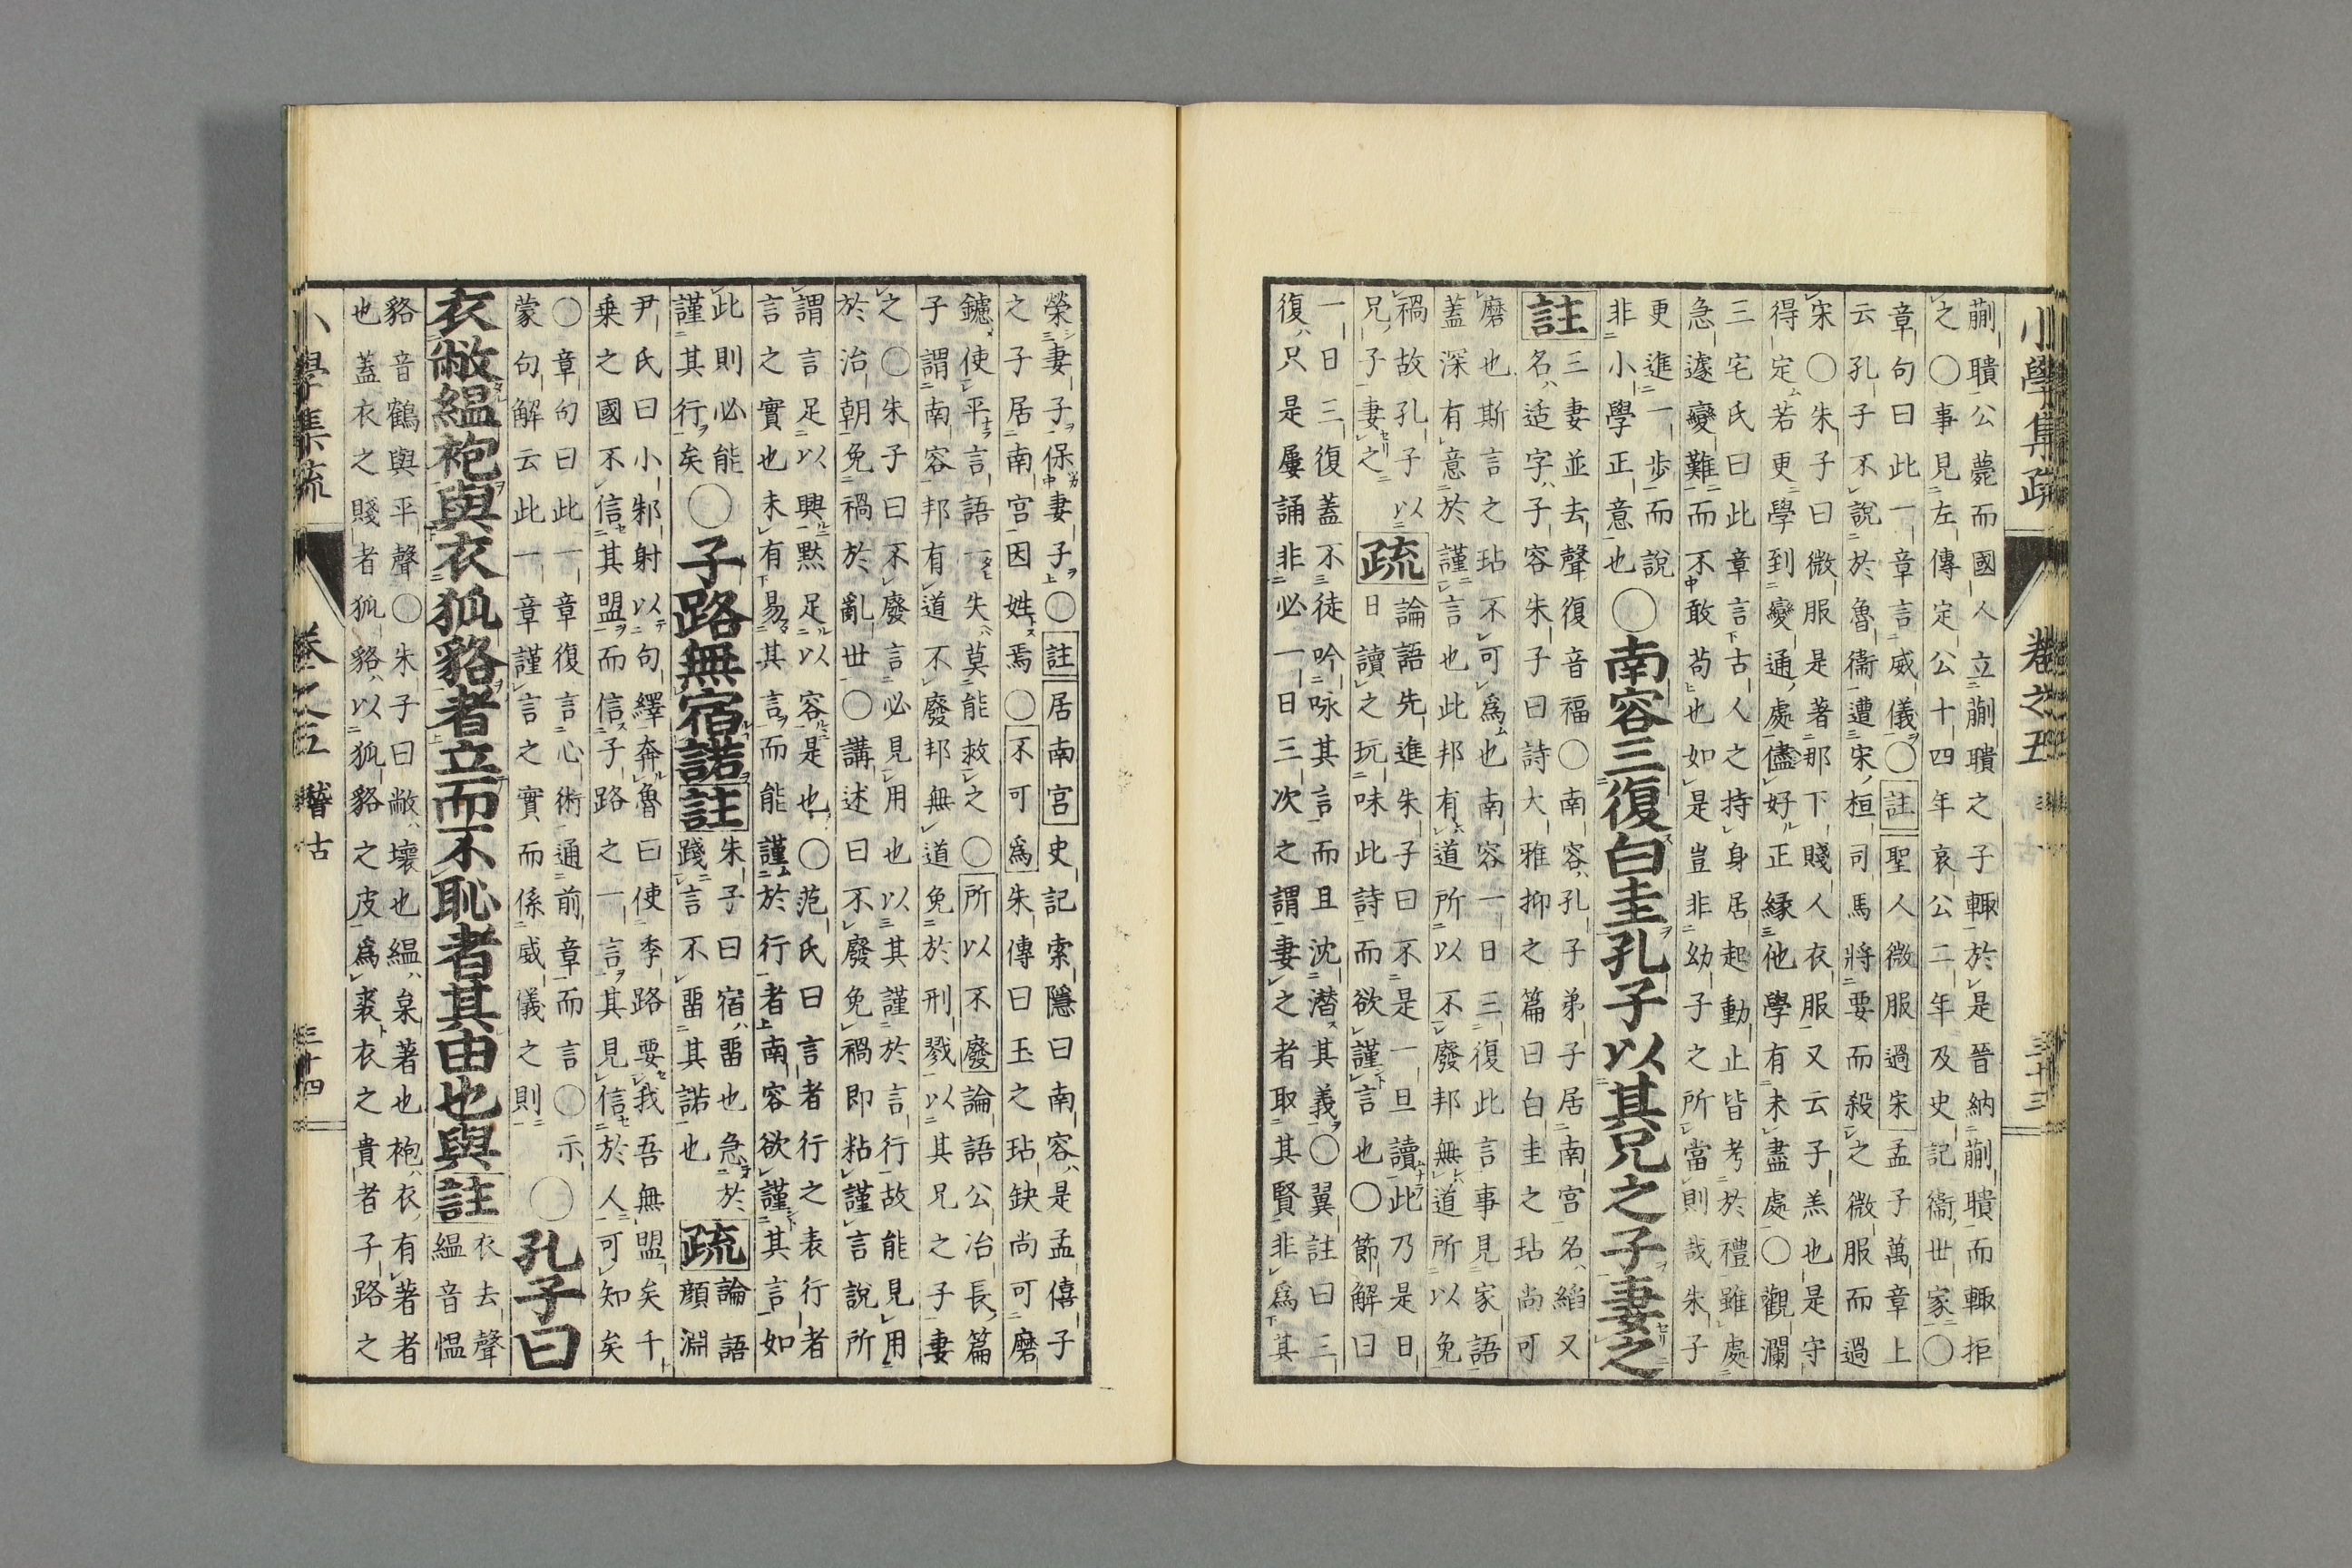 小學集疏 卷之五 三十三
蒯聵公薨而國人立蒯聵之子輙於是晉納蒯聵而輙拒
之〇事見左傳定公十四年哀公二年及史記衞世家〇
章句曰此一章言威儀〇註聖人微服過宋孟子萬章上
云孔子不說於魯衞遭宋桓司馬將要而殺之微服而過
宋〇朱子曰微服是著那下賤人衣服又云子羔也是守
得定若更學到變通處儘好正緣他學有未盡處〇觀瀾
三宅氏曰此章言古人之持身居起動止皆考於禮雖處
急遽變難而不敢苟也如是豈非幼子之所當則哉朱子
更進一步而說
非小學正意也
〇南容三復白圭孔子以其兄之子妻之
註
三妻並去聲復音福〇南容孔子弟子居南宮名縚又
名适字子容朱子曰詩大雅抑之篇曰白圭之玷尚可
磨也斯言之玷不可爲也南容一日三復此言事見家語
蓋深有意於謹言也此邦有道所以不廢邦無道所以免
禍故孔子以
兄子妻之
疏
論語先進朱子曰不是一旦讀此乃是日
日讀之玩味此詩而欲謹言也〇節解曰
一日三復蓋不徒吟咏其言而且沈潜其義〇翼註曰三
復只是屢誦非必一日三次之謂妻之者取其賢非爲其
榮妻子保妻子〇註居南宮史記索隱曰南容是孟僖子
之子居南宮因姓焉〇不可爲朱傳曰玉之玷缺尚可磨
鑢使平言語一失莫能救之〇所以不廢論語公冶長篇
子謂南容邦有道不廢邦無道免於刑戮以其兄之子妻
之〇朱子曰不廢言必見用也以其謹於言行故能見用
於治朝免禍於亂世〇講述曰不廢免禍即粘謹言說所
謂言足以興默足以容是也〇范氏曰言者行之表行者
言之實也未有易其言而能謹於行者南容欲謹其言如
此則必能
謹其行矣
〇子路無宿諾註
朱子曰宿畱也急於
踐言不畱其諾也
疏
論語
顔淵
尹氏曰小邾射以句繹奔魯曰使季路要我吾無盟矣千
乗之國不信其盟而信子路之一言其見信於人可知矣
〇章句曰此一章復言心術通前章而言〇示
蒙句解云此一章謹言之實而係威儀之則
〇孔子曰
衣敝縕袍與衣狐貉者立而不恥者其由也與註
衣去聲
縕音慍
貉音鶴與平聲〇朱子曰敝壞也縕枲著也袍衣有著者
也蓋衣之賤者狐貉以狐貉之皮爲裘衣之貴者子路之
小學集疏 卷之五 稽古 三十四